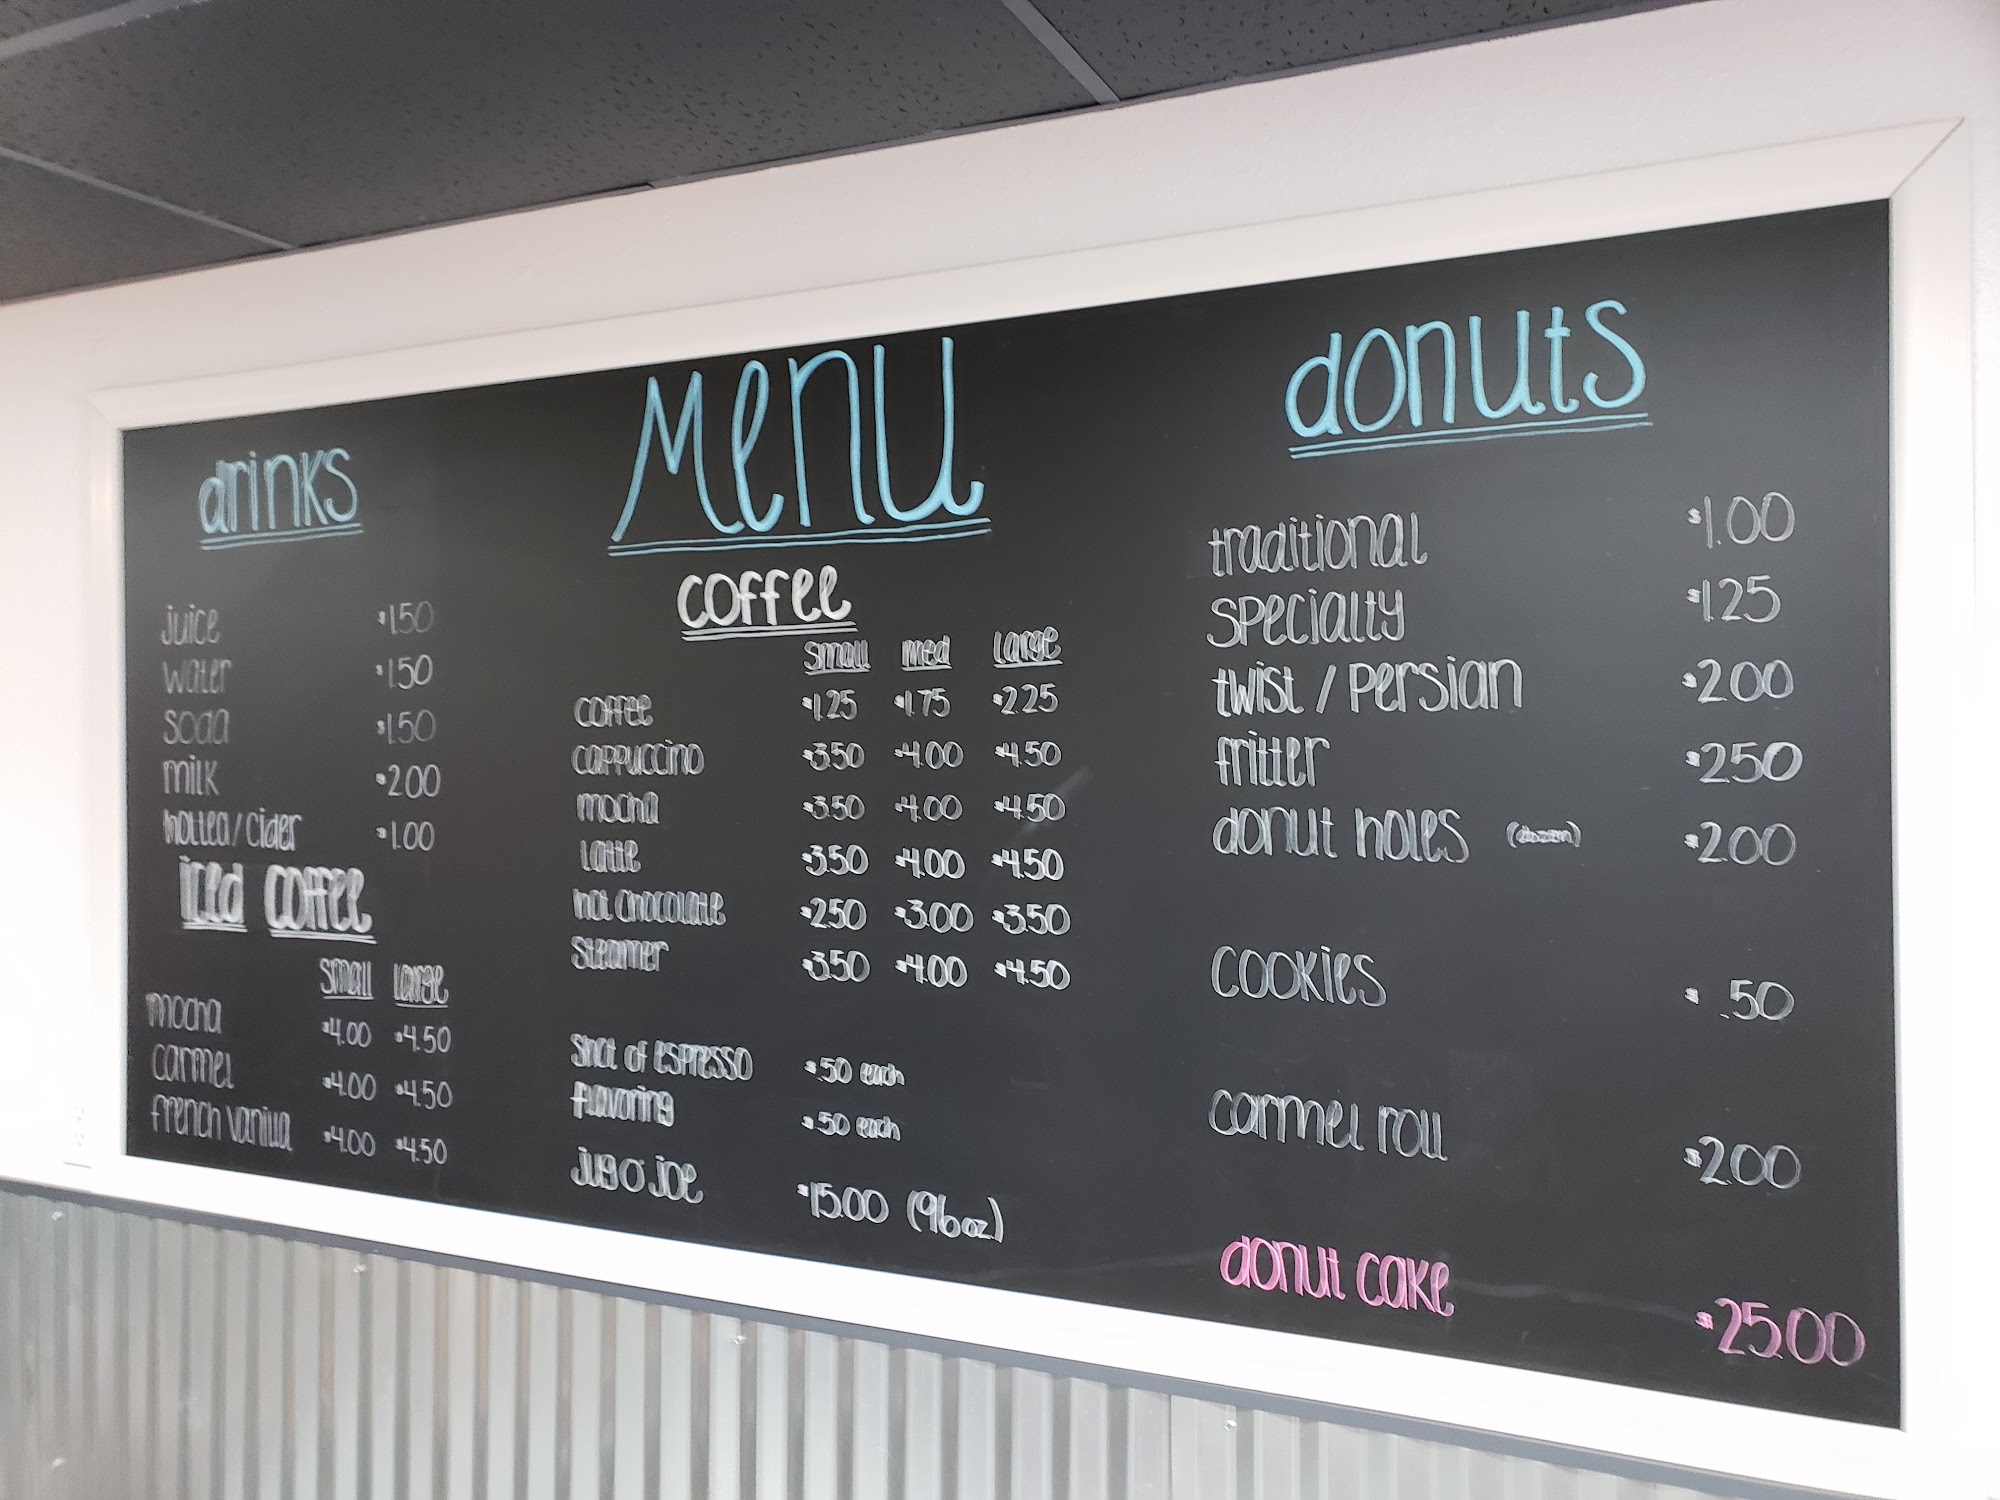 Menu
drinks
juice $1.50
water $1.50
soda $1.50
milk $2.00
hot tea/cider $1.00
iced coffee
small large
mocha $4.00 $4.50
carmel $4.00 $4.50
french vanilla $4.00 $4.50
coffee
small med large
coffee $1.25 $1.75 $2.25
cappuccino $3.50 $4.00 $4.50
mocha $3.50 $4.00 $4.50
latte $3.50 $4.00 $4.50
hot chocolate $2.50 $3.00 $3.50
steamer $3.50 $4.00 $4.50
shot of espresso $.50 each
flavoring $.50 each
jug o' joe $15.00 (96oz)
donuts
traditional $1.00
specialty $1.25
twist / persian $2.00
fritter $2.50
donut holes (dozen) $2.00
cookies $.50
carmel roll $2.00
donut cake $25.00